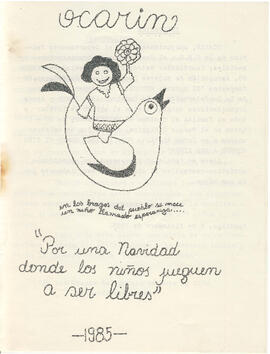 ocarin
en los brazos del pueblo se mece
un niño llamado esperanza....
"Por una Navidad
donde los niños jueguen
a ser libres"
—1985—